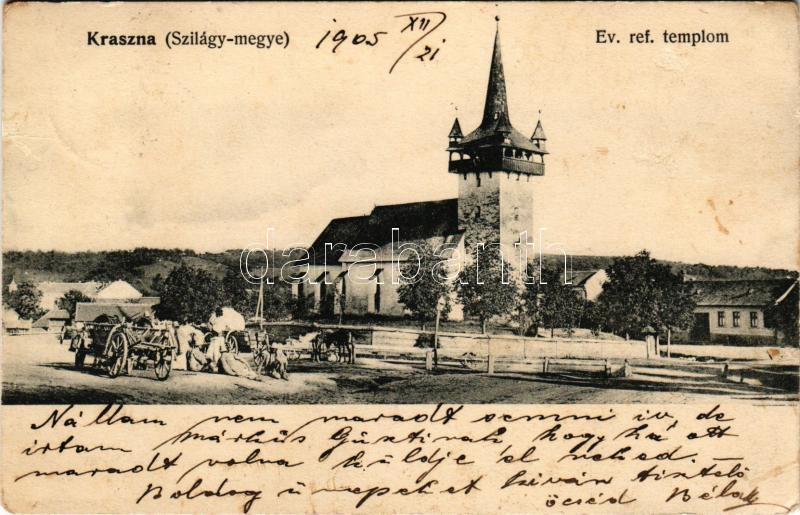 Kraszna (Szilágy-megye)
1905 XII/21
Ev. ref. templom
darabanth
Nállam nem maradt semmi iv, de
irtam Márkus Gusztinak hogy ha ott
maradt volna küldje el neked.
Boldog ünnepeket kiván tisztelő
öcséd Béla